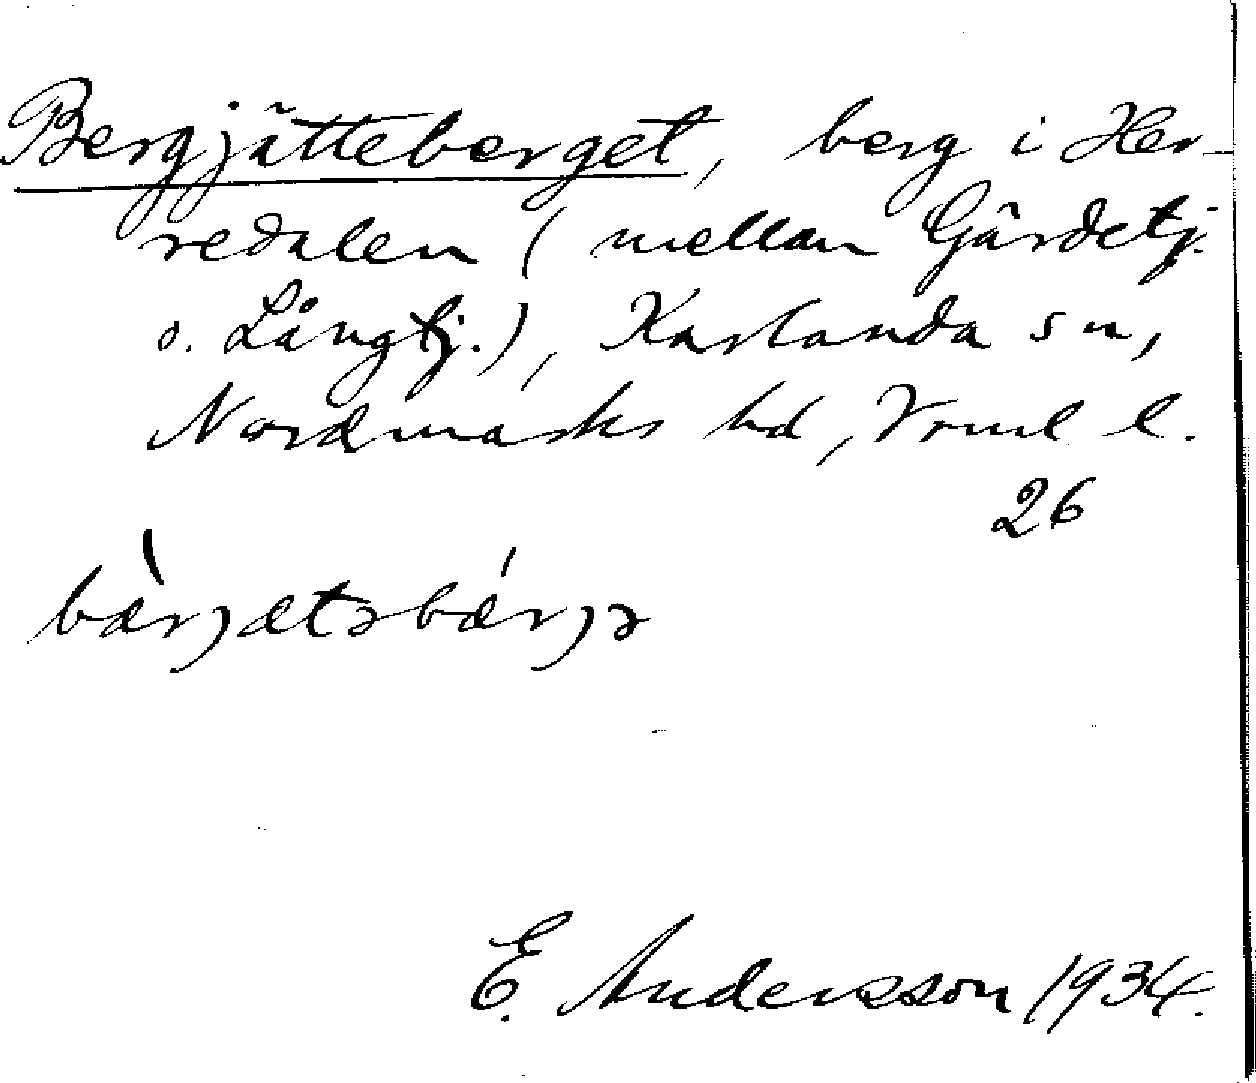 Bergjätteberget, berg i Her-
redalen (mellan Gärdetj.
o. Långtj.), Karlanda sn,
Nordmarks hd, Vrml l.
26
bæ̀rjætəbǽrjə
E. Andersson 1934.